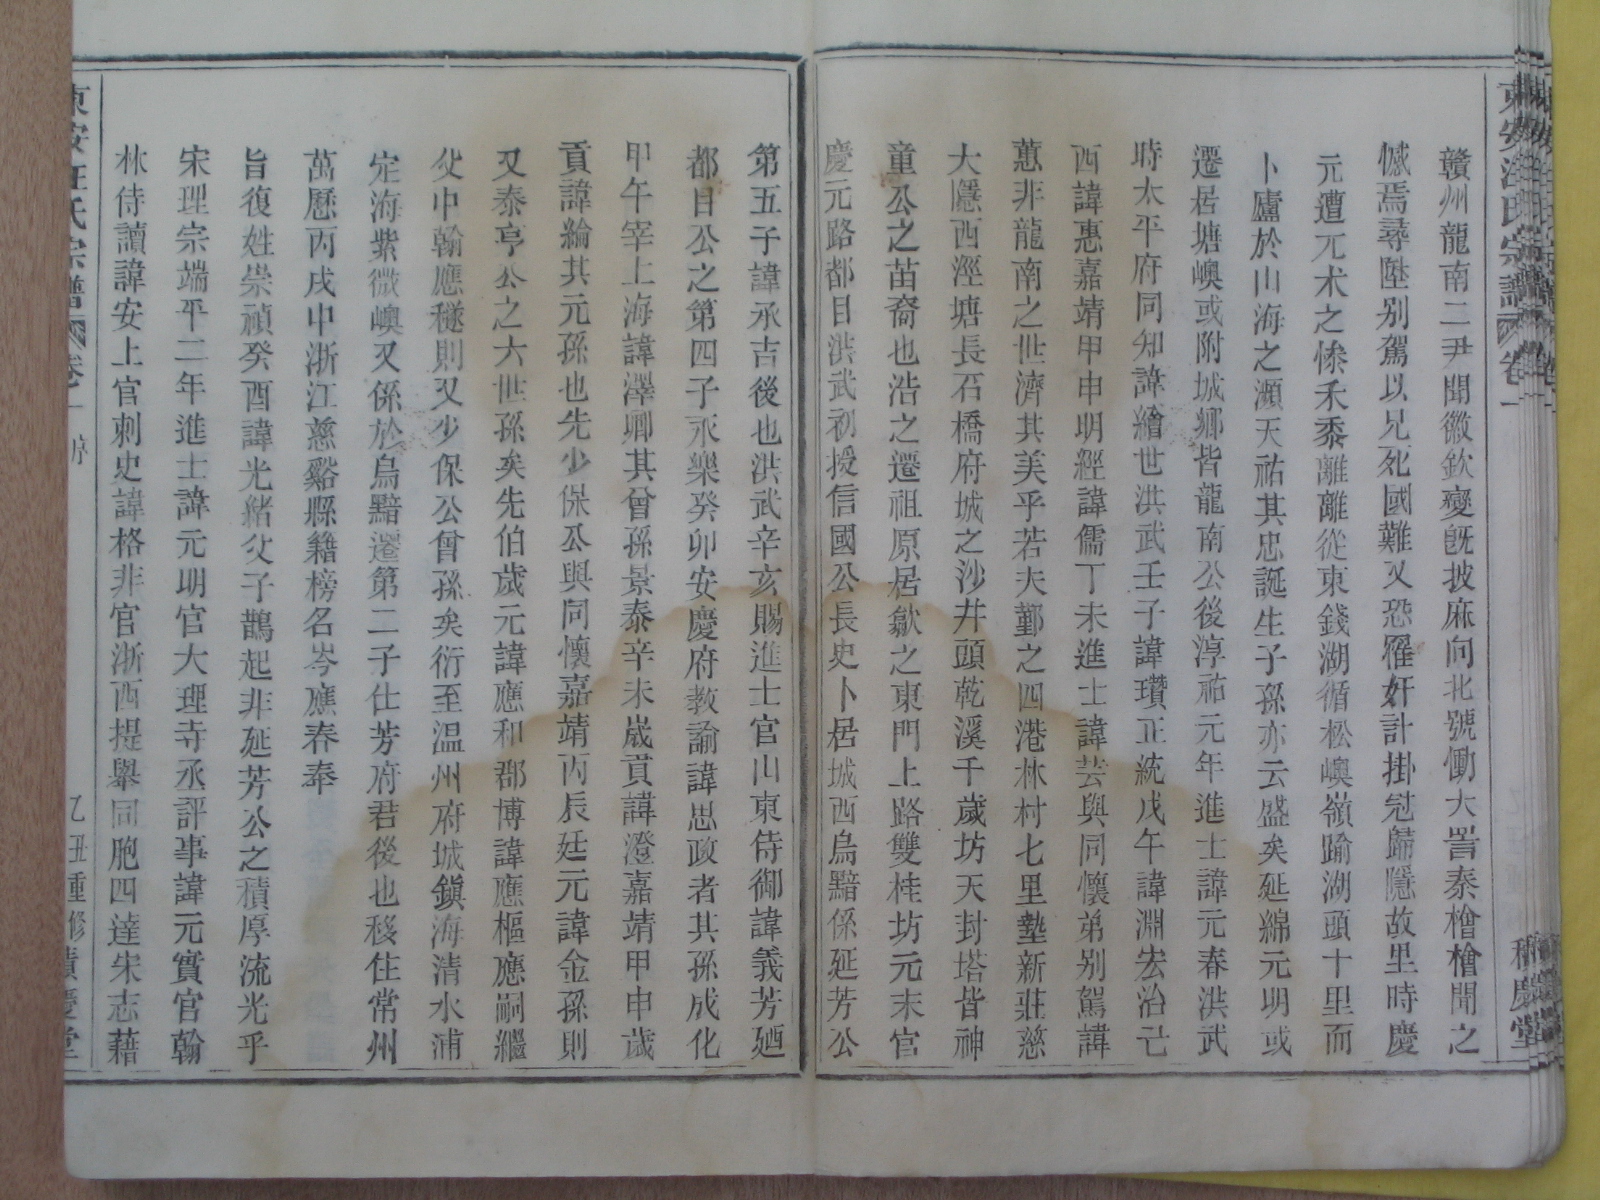 東安汪氏宗譜 卷一 積慶堂
贛州龍南二尹聞徽欽變旣披麻向北號慟大詈秦檜檜聞之
憾焉尋陞别駕以兄死國難又恐罹奸計掛冠歸隱故里時慶
元遭兀朮之慘禾黍離離從東錢湖循松嶴嶺踰湖頭十里而
卜廬於山海之灝天祐其忠誕生子孫亦云盛矣延綿元明或
遷居塘嶴或附城鄉皆龍南公後淳祐元年進士諱元春洪武
時太平府同知諱繪世洪武壬子諱瓚正統戊午諱淵宏治己
酉諱惠嘉靖甲申明經諱儒丁未進士諱芸與同懷弟别駕諱
蕙非龍南之世濟其美乎若夫鄞之四港林村七里墊新莊慈
大隱西溼塘長石橋府城之沙井頭乾溪千歲坊天封塔皆神
童公之苗裔也浩之遷祖原居歙之東門上路雙桂坊元末官
慶元路都目洪武初授信國公長史卜居城西烏黯係延芳公
第五子諱承吉後也洪武辛亥賜進士官山東侍御諱義芳廼
都目公之第四子永樂癸卯安慶府教諭諱思政者其孫成化
甲午宰上海諱澤卿其曾孫景泰辛未歲貢諱澄嘉靖甲申歲
貢諱綸其元孫也先少保公與同懷嘉靖丙辰廷元諱金孫則
又泰亨公之六世孫矣先伯歲元諱應和郡博諱應樞應嗣繼
父中翰應穟則又少保公曾孫矣衍至温州府城鎭海清水浦
定海紫微嶴又係於烏黯遷第二子仕芳府君後也移住常州
萬厯丙戌中浙江慈谿縣籍榜名岑應春奉
旨復姓崇禎癸酉諱光緒父子鵲起非延芳公之積厚流光乎
宋理宗端平二年進士諱元明官大理寺丞評事諱元實官翰
林侍讀諱安上官刺史諱格非官浙西提舉同胞四達宋志藉
東安汪氏宗譜 卷一 序 乙丑重修 積慶堂